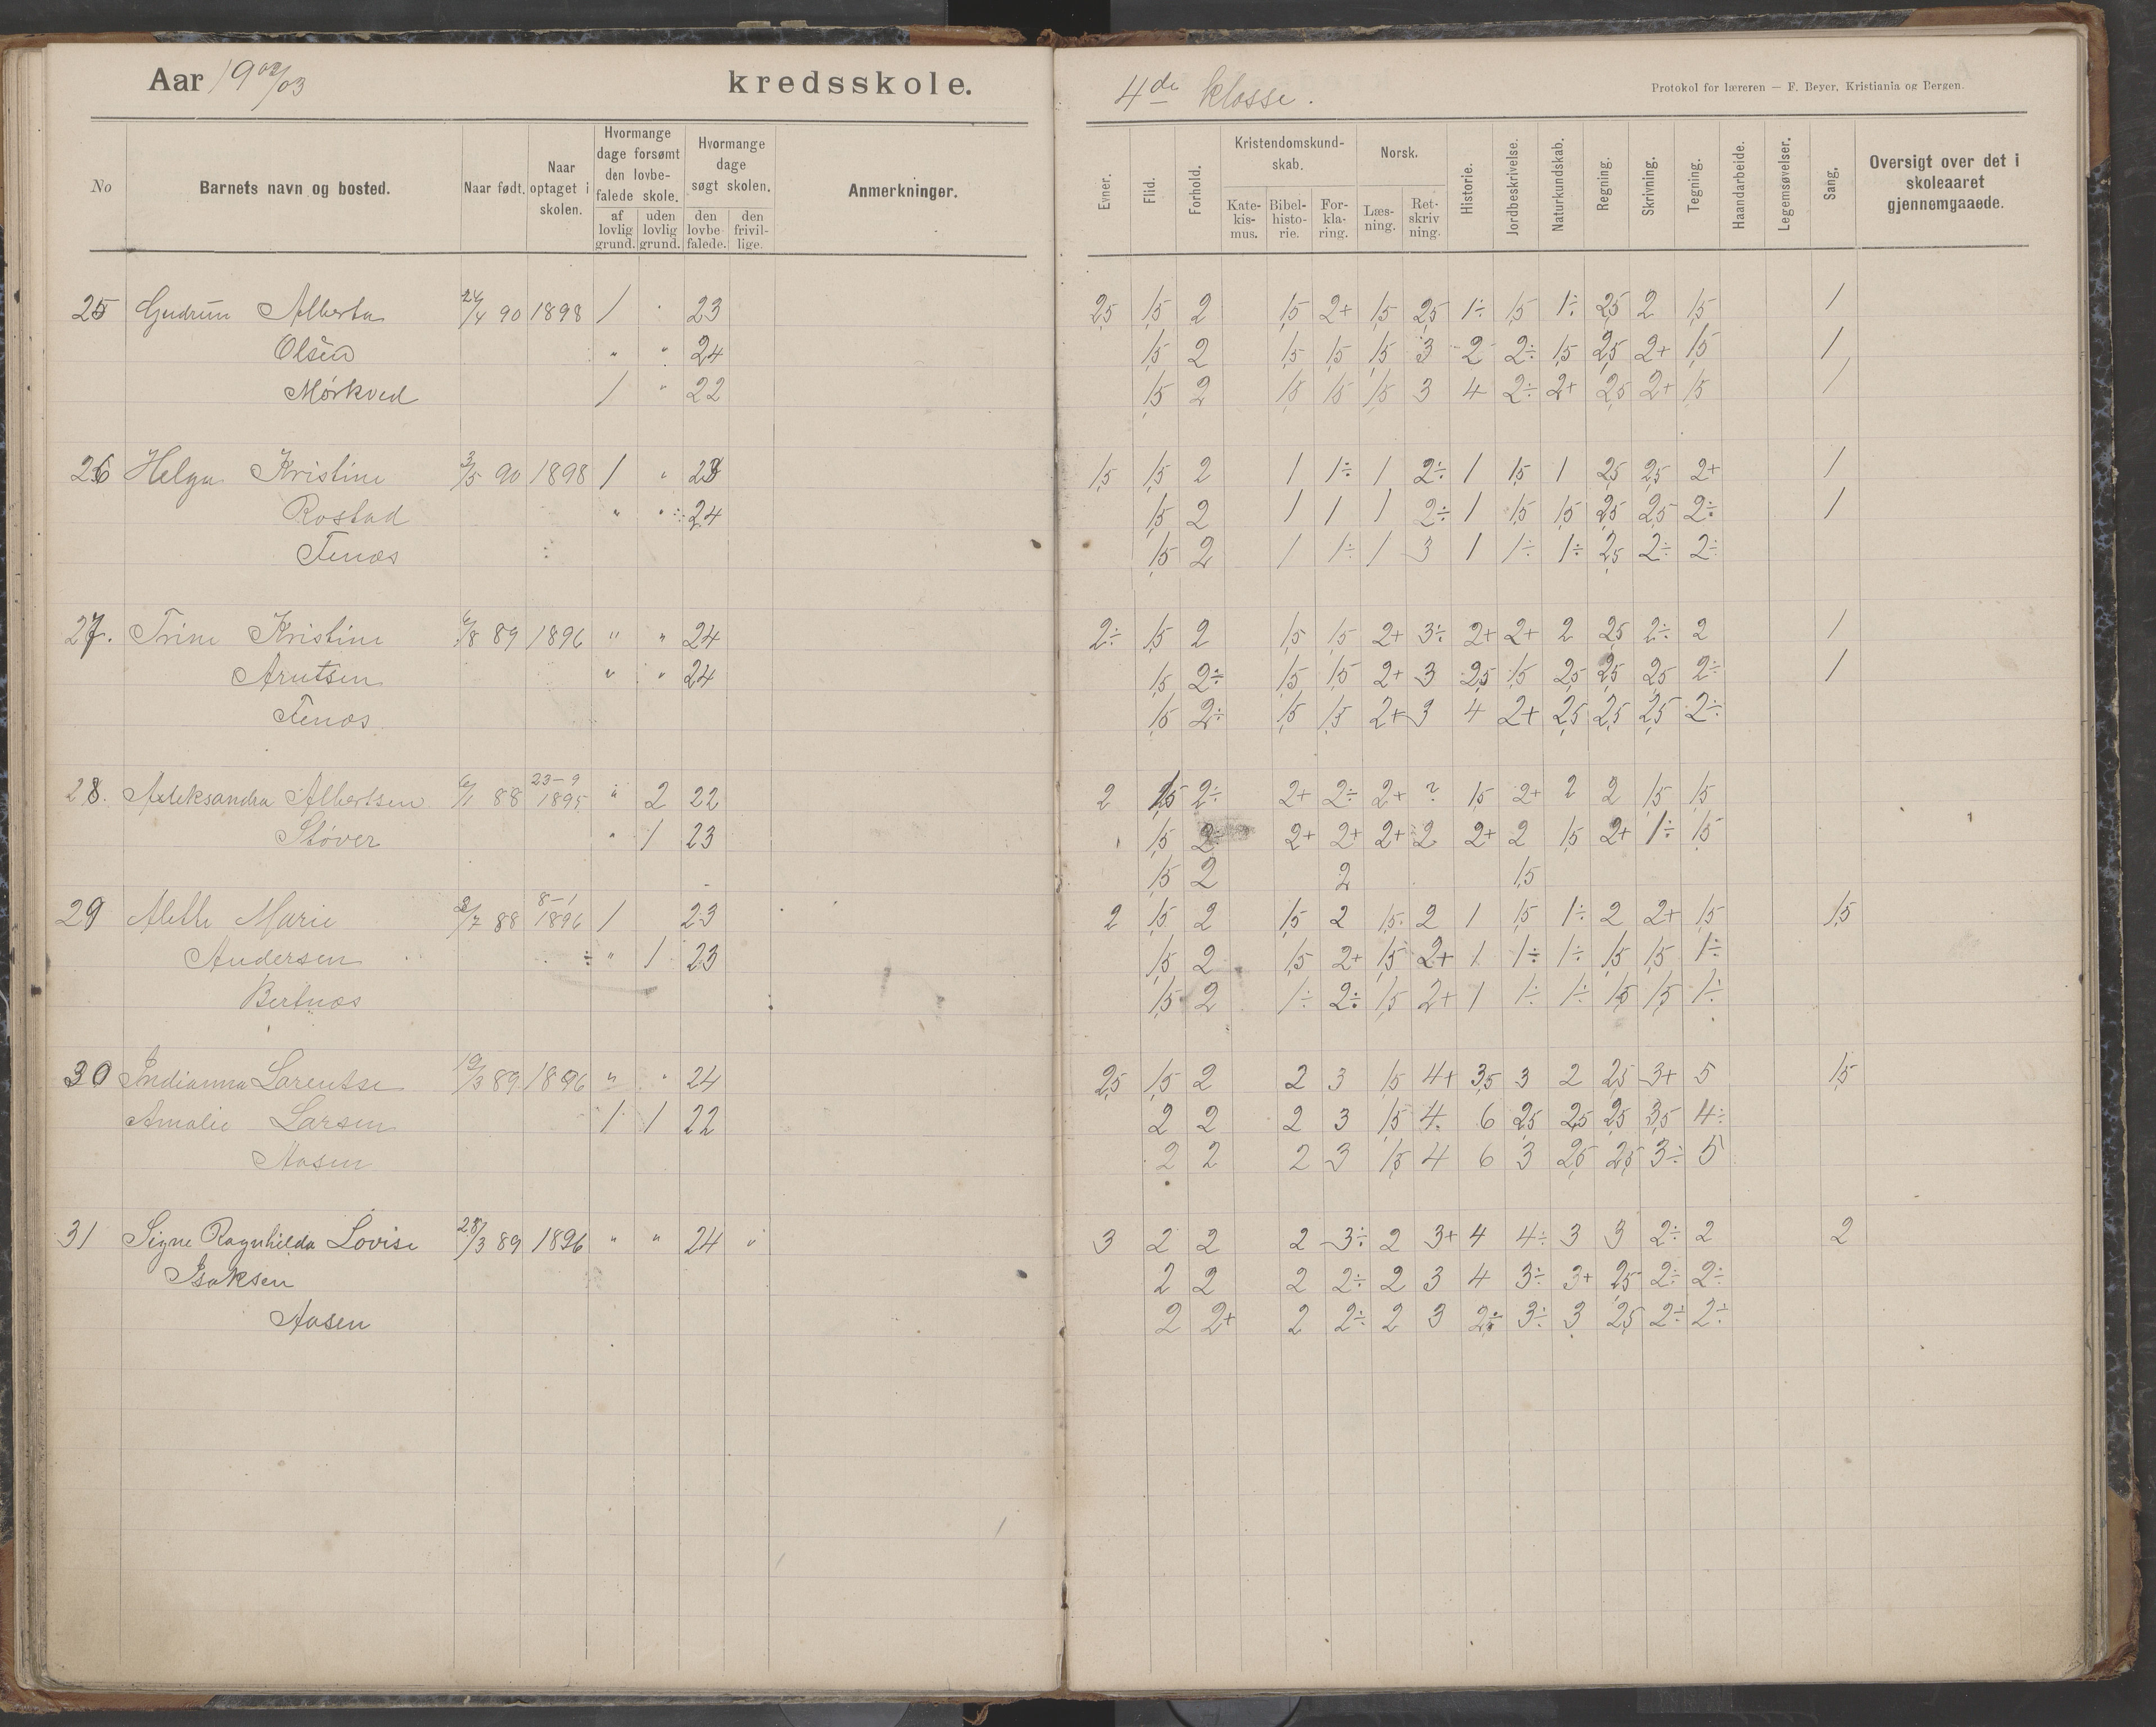 Aar 1902/03 kredsskole.
4de klasse.
Protokol for læreren — F. Beyer, Kristiania og Bergen.
No
Barnets navn og bosted.
Naar født.
Naar optaget i skolen.
Hvormange dage forsømt den lovbe-falede skole.
af lovlig grund.
uden lovlig grund.
Hvormange dage søgt skolen.
den lovbe-falede.
den frivil-lige.
Anmerkninger.
Evner.
Flid.
Forhold.
Kristendomskund-skab.
Kate-kis-mus.
Bibel-histo-rie.
For-kla-ring.
Norsk.
Læs-ning.
Ret-skriv ning.
Historie.
Jordbeskrivelse.
Naturkundskab.
Regning.
Skrivning.
Tegning.
Haandarbeide.
Legemsøvelser.
Sang.
Oversigt over det i skoleaaret gjennemgaaede.
25 Gudrun Alberta 24/4 90 1898 / " 23 2,5 1,5 2 1,5 2+ 1,5 2,5 1÷ 1,5 1÷ 2,5 2 1,5 1
Olsen " " 24 1,5 2 1,5 1,5 1,5 3 2 2÷ 1,5 2,5 2+ 1,5 1
Mørkved / " 22 1,5 2 1,5 1,5 1,5 3 4 2÷ 2+ 2,5 2+ 1,5 /
26 Helga Kristine 3/5 90 1898 / " 23 1,5 1,5 2 1 1÷ 1 2÷ 1 1,5 1 2,5 2,5 2+ 1
Rostad " " 24 1,5 2 1 1 1 2÷ 1 1,5 1,5 2,5 2,5 2÷ 1
Tenæs 1,5 2 1 1÷ 1 3 1 1÷ 1÷ 2,5 2÷ 2÷
27. Trine Kristine 6/8 89 1896 " " 24 2÷ 1,5 2 1,5 1,5 2+ 3÷ 2+ 2+ 2 2,5 2÷ 2 1
Arntsen " " 24 1,5 2÷ 1,5 1,5 2+ 3 2,5 1,5 2,5 2,5 2,5 2÷ 1
Tenæs. 1,5 2÷ 1,5 1,5 2+ 3 4 2+ 2,5 2,5 2,5 2÷
28. Aleksandra Albertsen 6/1 88 23-9 1895 " 2 22 2 1,5 2÷ 2+ 2÷ 2+ ? 1,5 2+ 2 2 1,5 1,5
Støver " 1 23 1,5 2÷ 2+ 2+ 2+ 2 2+ 2 1,5 2+ 1÷ 1,5
1,5 2 2 1,5
29 Alette Marie 3/7 88 8-1 1896 / 23 2 1,5 2 1,5 2 1,5 2 1 1,5 1÷ 2 2+ 1,5 1,5
Andersen " 1 23 1,5 2 1,5 2+ 1,5 2+ 1 1÷ 1÷ 1,5 1,5 1÷
Bertnæs 1,5 2 1÷ 2÷ 1,5 2+ 1 1÷ 1÷ 1,5 1,5 1÷
30 Indianna Larentse 19/3 89 1896 " " 24 2,5 1,5 2 2 3 1,5 4+ 3,5 3 2 2,5 3+ 5 1,5
Amalie Larsen 1 1 22 2 2 2 3 1,5 4 6 2,5 2,5 2,5 3,5 4÷
Aasen 2 2 2 3 1,5 4 6 3 2,5 2,5 3÷ 5
31 Signe Ragnhilda Lovise 28/3 89 1896 " " 24 " 3 2 2 2 3÷ 2 3+ 4 4÷ 3 3 2÷ 2 2
Isaksen 2 2 2 2÷ 2 3 4 3÷ 3+ 2,5 2÷ 2÷
Aasen 2 2+ 2 2÷ 2 3 2÷ 3÷ 3 2,5 2÷ 2÷